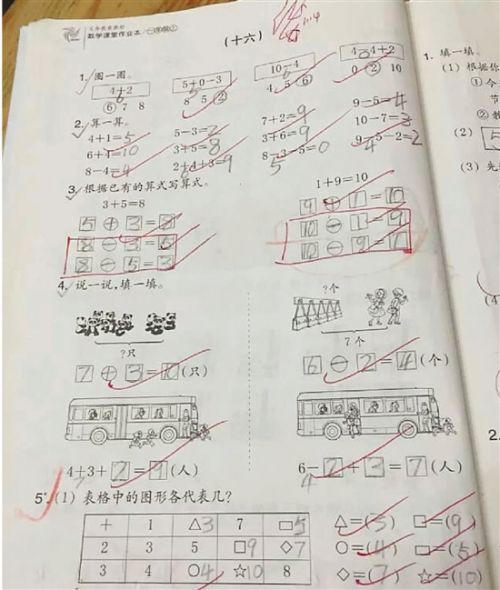 数学课堂作业本
(十六)
1. 圈一圈。
4+2 5+0-3 10-4 4-4+2
6 5 6 0
⑥ 7 8 8 5 ② 4 5 ⑥ 0 ② 10
2. 算一算。
4+1=5 5-3=2 7+2=9 9-5=4
6+4=10 3+5=8 3+6=9 10-7=3
8-4=4 2+4+3=9 8-3-5=0 9-5-2=2
6 5 4
3. 根据已有的算式写算式。
3+5=8 1+9=10
5 + 3 = 8 9 + 1 = 10
8 - 3 = 5 10 - 1 = 9
8 - 5 = 3 10 - 9 = 1
4. 说一说,填一填。
?个
?只 7个
7 + 3 = 10 (只) 6 - 2 = 4 (个)
4+3+2=9(人) 6-2+3=7(人)
7 4
5* (1) 表格中的图形各代表几?
+ 1 △3 7 □5
2 3 5 □9 ◇7
3 4 ○4 ☆10 8
△=(3) □=(9)
○=(4) □=(5)
◇=(7) ☆=(10)
1. 填一填。
(1) 根据你
① 今
节
(2) 5
(3) 先
(4
2.